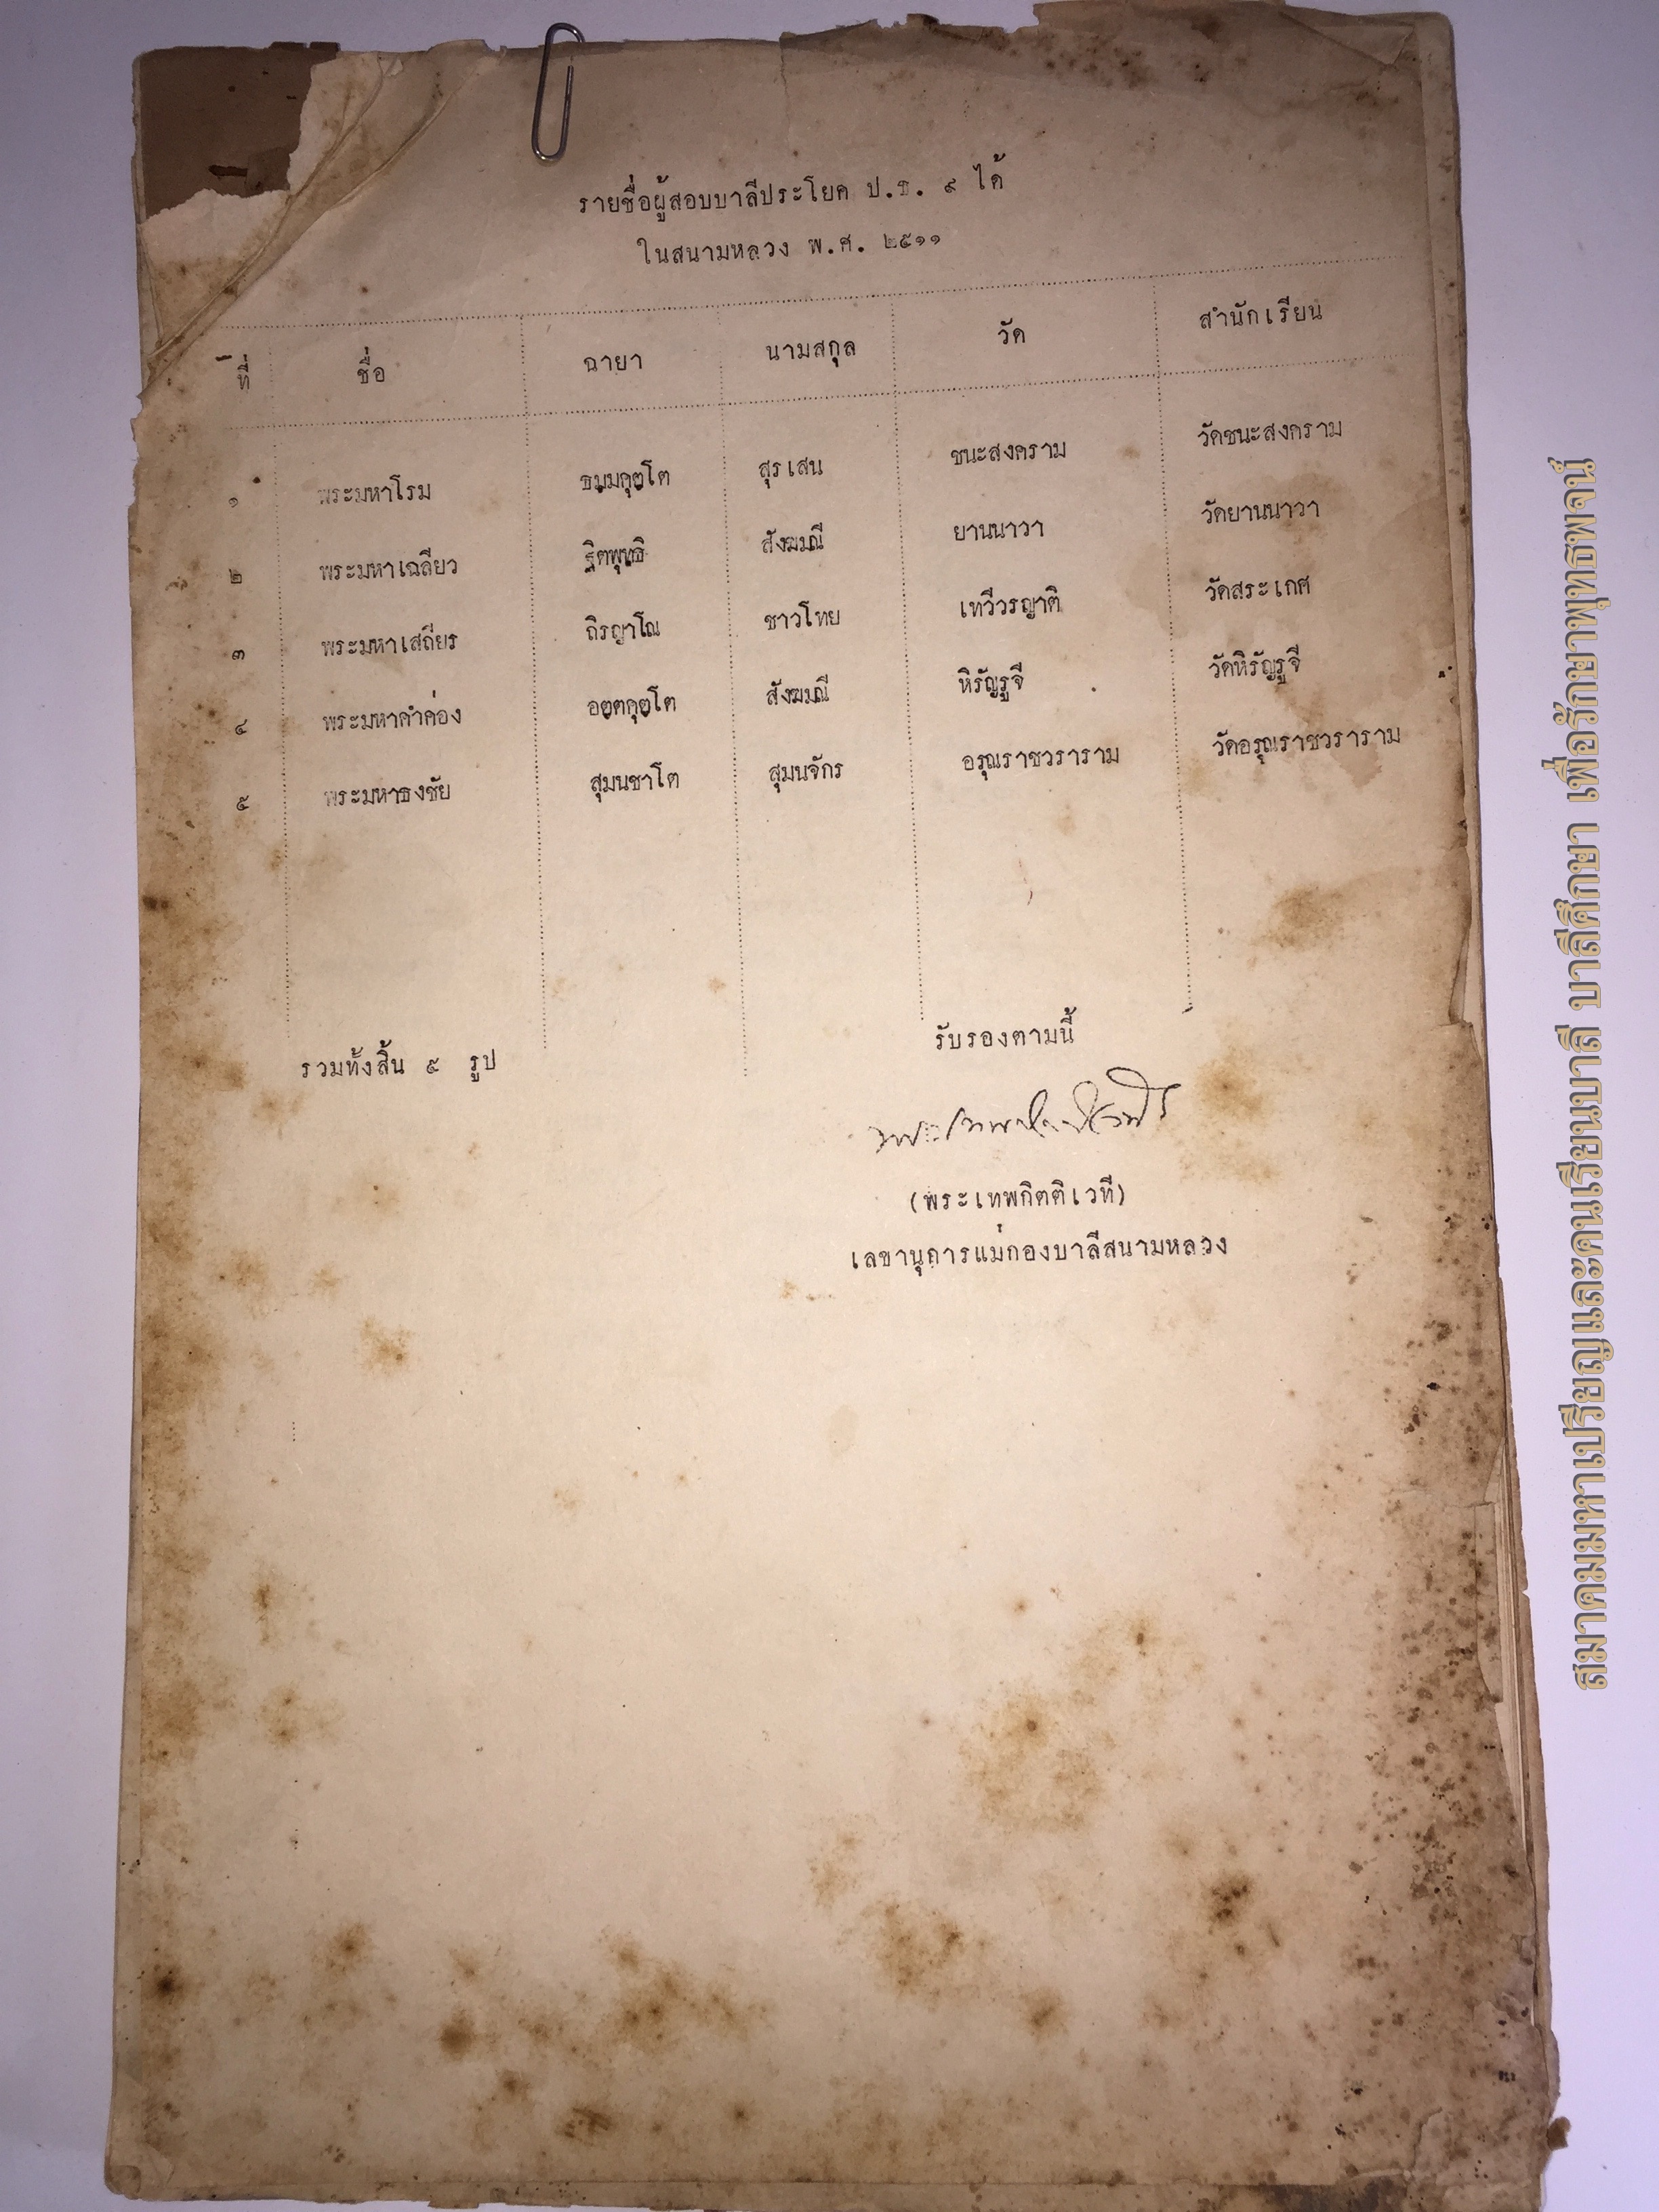 รายชื่อผู้สอบบาลีประโยค ป.ธ. ๙ ได้
ในสนามหลวง พ.ศ. ๒๕๑๑
ที่ ชื่อ ฉายา นามสกุล วัด สำนักเรียน
๑ พระมหาโรม ธมฺมคุตฺโต สุรเสน ชนะสงคราม วัดชนะสงคราม
๒ พระมหาเฉลียว ฐิตพุทฺธิ สังฆมณี ยานนาวา วัดยานนาวา
๓ พระมหาเสถียร ถิรญาโณ ชาวไทย เทวีวรญาติ วัดสระเกศ
๔ พระมหาคำค่อง อตฺตคุตฺโต สังฆมณี หิรัญรูจี วัดหิรัญรูจี
๕ พระมหาธงชัย สุมนชาโต สุมนจักร อรุณราชวราราม วัดอรุณราชวราราม
รวมทั้งสิ้น ๕ รูป
รับรองตามนี้
(พระเทพกิตติเวที)
เลขานุการแม่กองบาลีสนามหลวง
สมาคมมหาเปรียญและคนเรียนบาลี บาลีศึกษา เพื่อรักษาพุทธพจน์